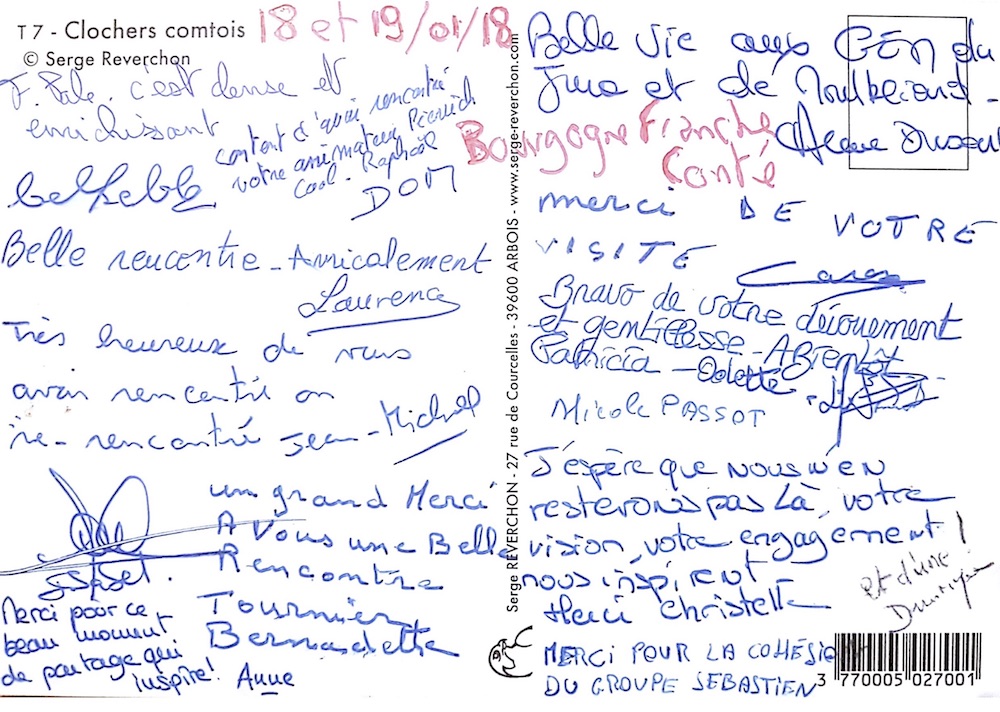 T 7 - Clochers comtois
© Serge Reverchon
18 et 19/01/18
c'est dense et
enrichissant
content d'avoir rencontré
votre animateur
Cool. Raphaël
DOM
Belle rencontre - Amicalement
Laurence
Très heureux de vous
avoir rencontré ou
re-rencontré Jean-Michel
un grand Merci
A Vous une Belle
Rencontre
Tournier
Bernadette
Merci pour ce
beau moment
de partage qui
inspire! Anne
Serge REVERCHON - 27 rue de Courcelles - 39600 ARBOIS - www.serge-reverchon.com
Belle vie aux CEN du
Jura et de Montbeliard -
Bourgogne Franche
Conté
merci DE VOTRE
VISITE
Bravo de votre dévouement
et gentillesse - A Bientôt
Patricia - Odette
Nicole PASSOT
J'espère que nous n'en
resterons pas Là, votre
vision, votre engagement !
nous inspirent
Merci Christelle
MERCI POUR LA COHÉSION
DU GROUPE SEBASTIEN
3 770005 027001